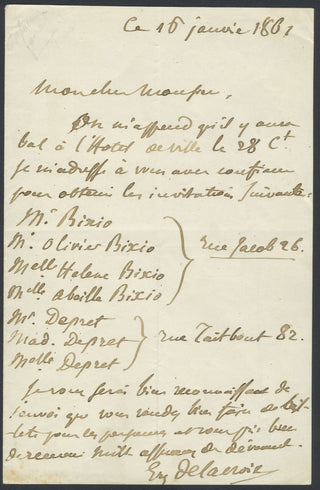 Ce 16 janvie 1861
Mon cher Monsieur,
On m'apprend qu'il y aura
bal à l'Hotel de ville le 28 Ct.
Je m'adresse à vous avec confiance
pour obtenir les invitations suivantes:
Mr. Bixio
Mr. Olivier Bixio
Melle Helene Bixio
Melle abeille Bixio
rue Jacob 26.
Mr. Depret
Mad. Depret
Melle Depret
rue Taitbout 82.
Je vous serai bien reconnaissant de
l'envoi que vous voudrez bien faire de
pour les personnes et vous prie bien
de recevoir mille assurances de dévoument.
Eug Delacroix